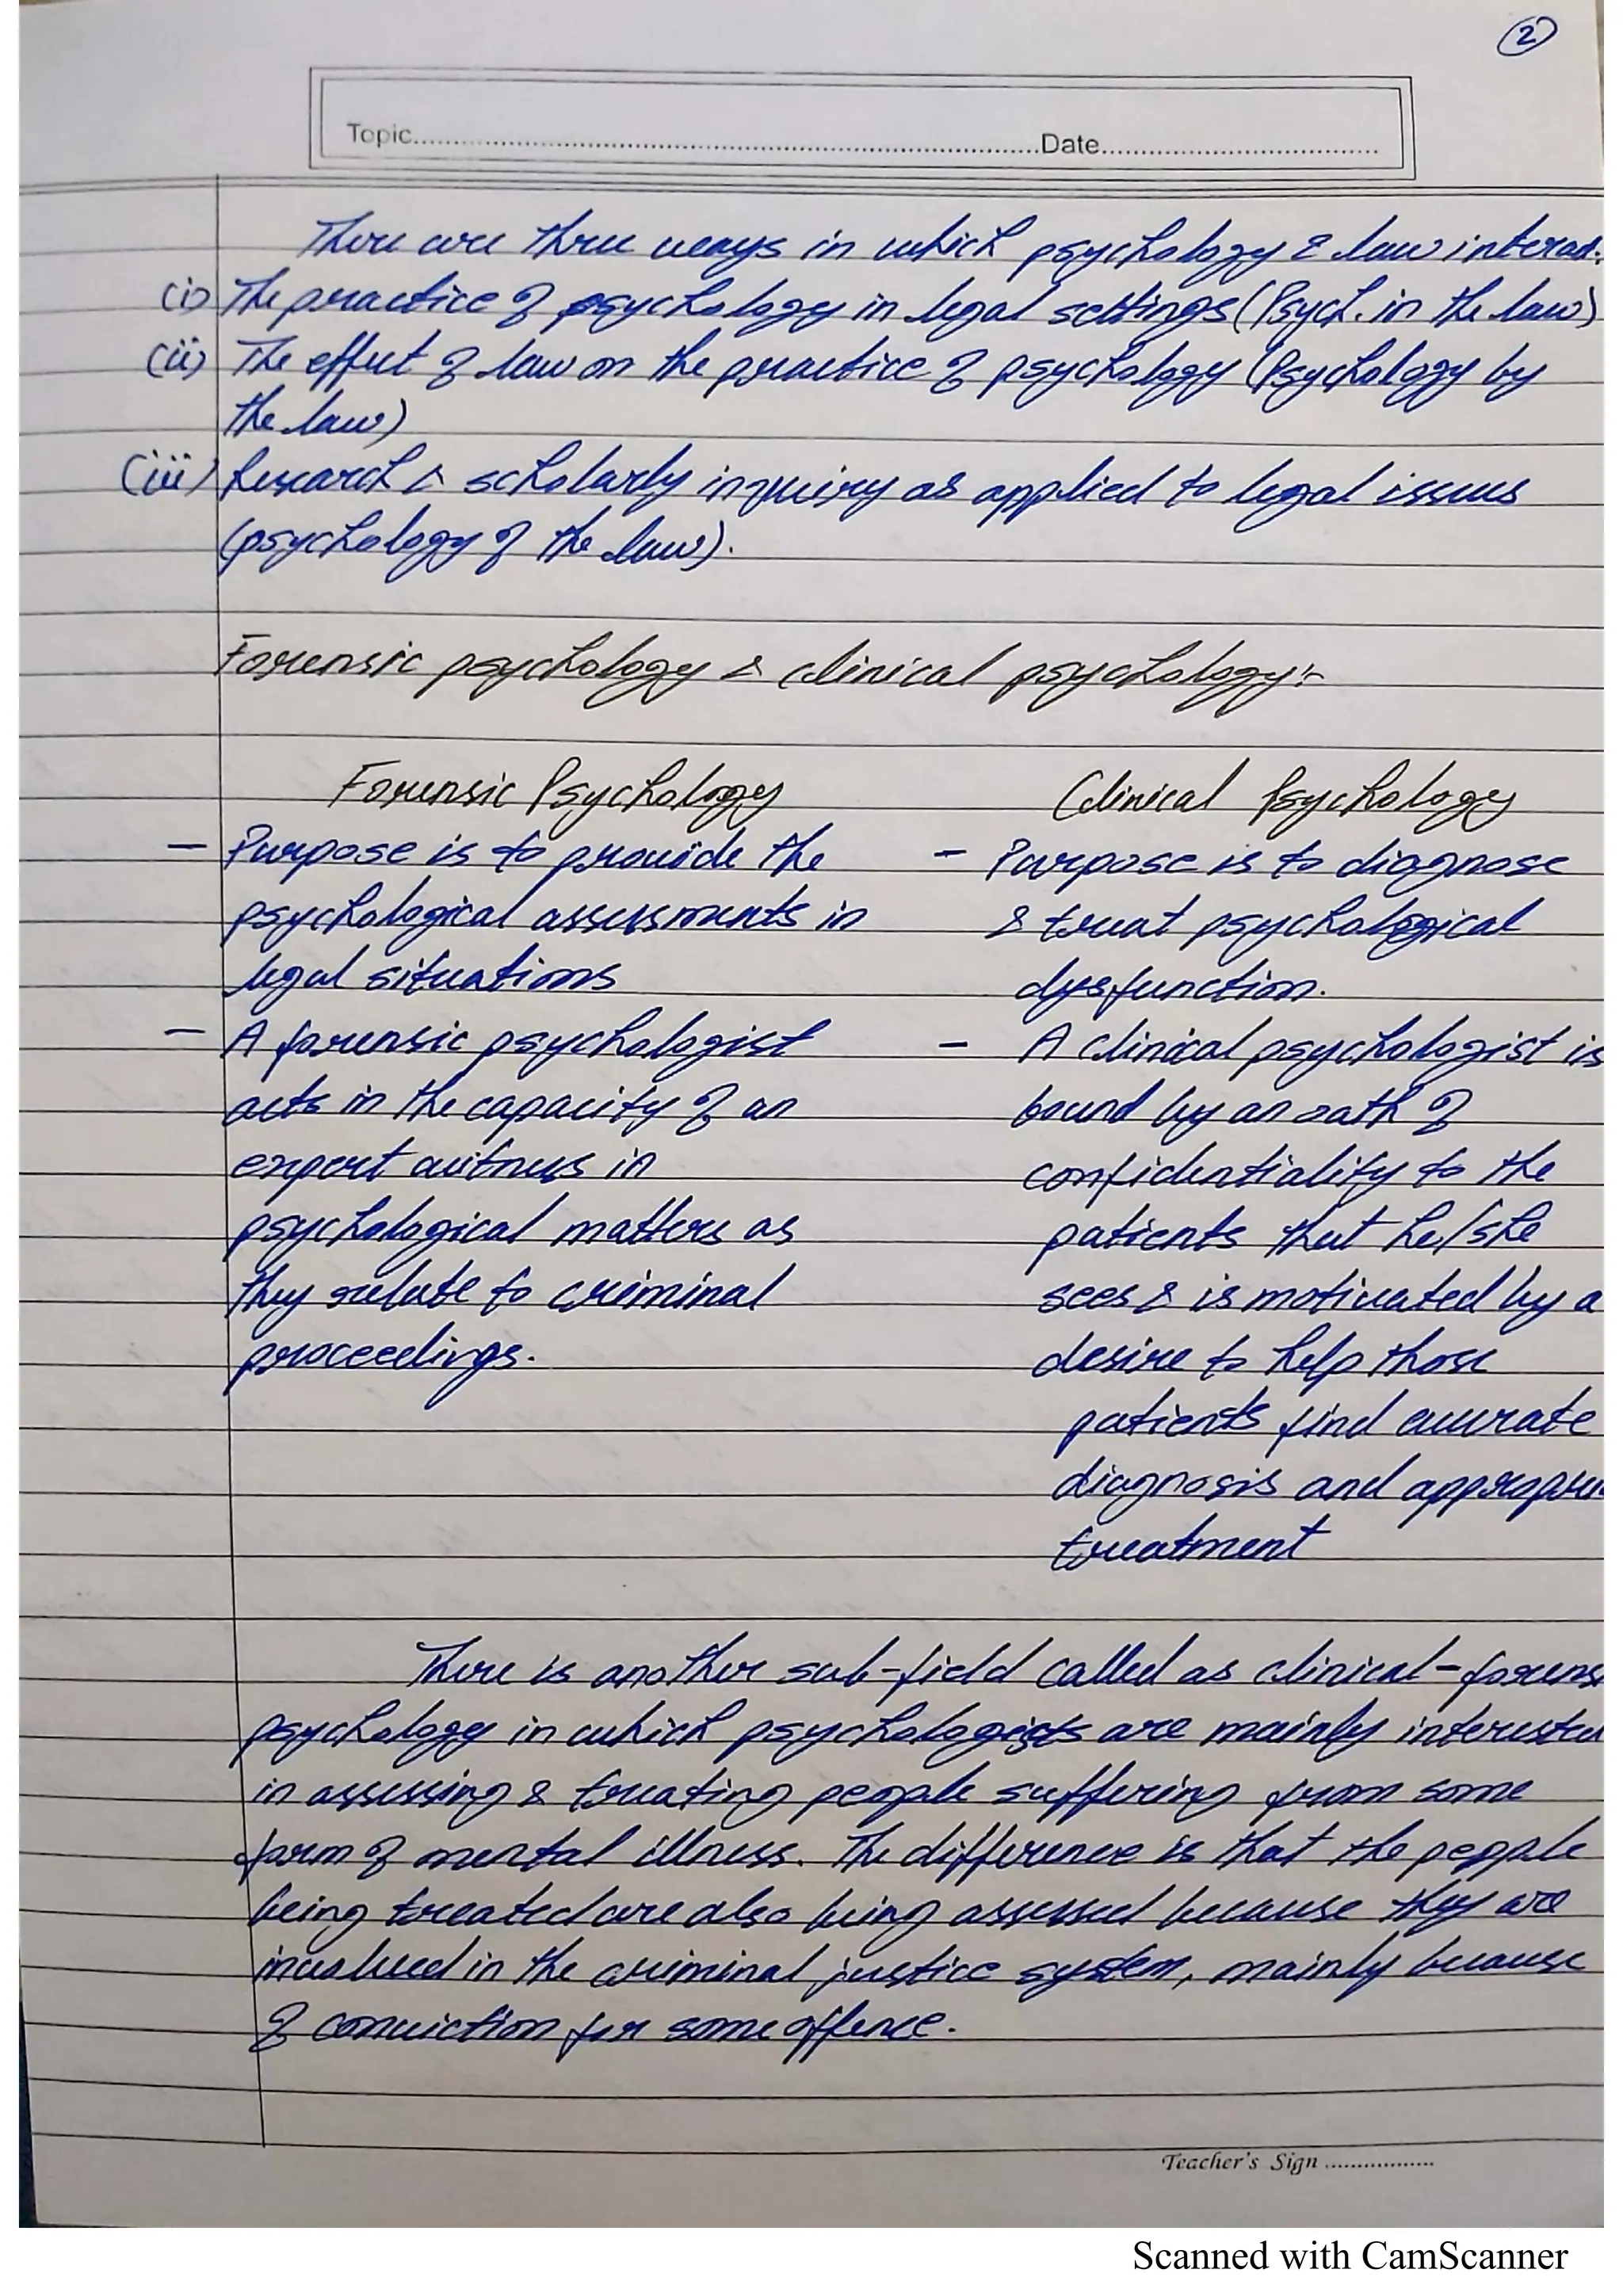 2
Topic.....................................................Date..............................
There are three ways in which psychology & law interact.
(i) The practice of psychology in legal settings (Psych. in the law)
(ii) The effect of law on the practice of psychology (Psychology by
the law)
(iii) Research & scholarly inquiry as applied to legal issues
(psychology of the law).
Forensic psychology & clinical psychology:-
Forensic Psychology
- Purpose is to provide the
psychological assessments in
legal situations
- A forensic psychologist
acts in the capacity of an
expert witness in
psychological matters as
they relate to criminal
proceedings.
Clinical Psychology
- Purpose is to diagnose
& treat psychological
dysfunction.
- A clinical psychologist is
bound by an oath of
confidentiality to the
patients that he/she
sees & is motivated by a
desire to help those
patients find accurate
diagnosis and appropri
treatment
There is another sub-field called as clinical-forens
psychology in which psychologists are mainly interested
in assessing & treating people suffering from some
form of mental illness. The difference is that the people
being treated are also being assessed because they are
involved in the criminal justice system, mainly because
of conviction for some offence.
Teacher's Sign .................
Scanned with CamScanner